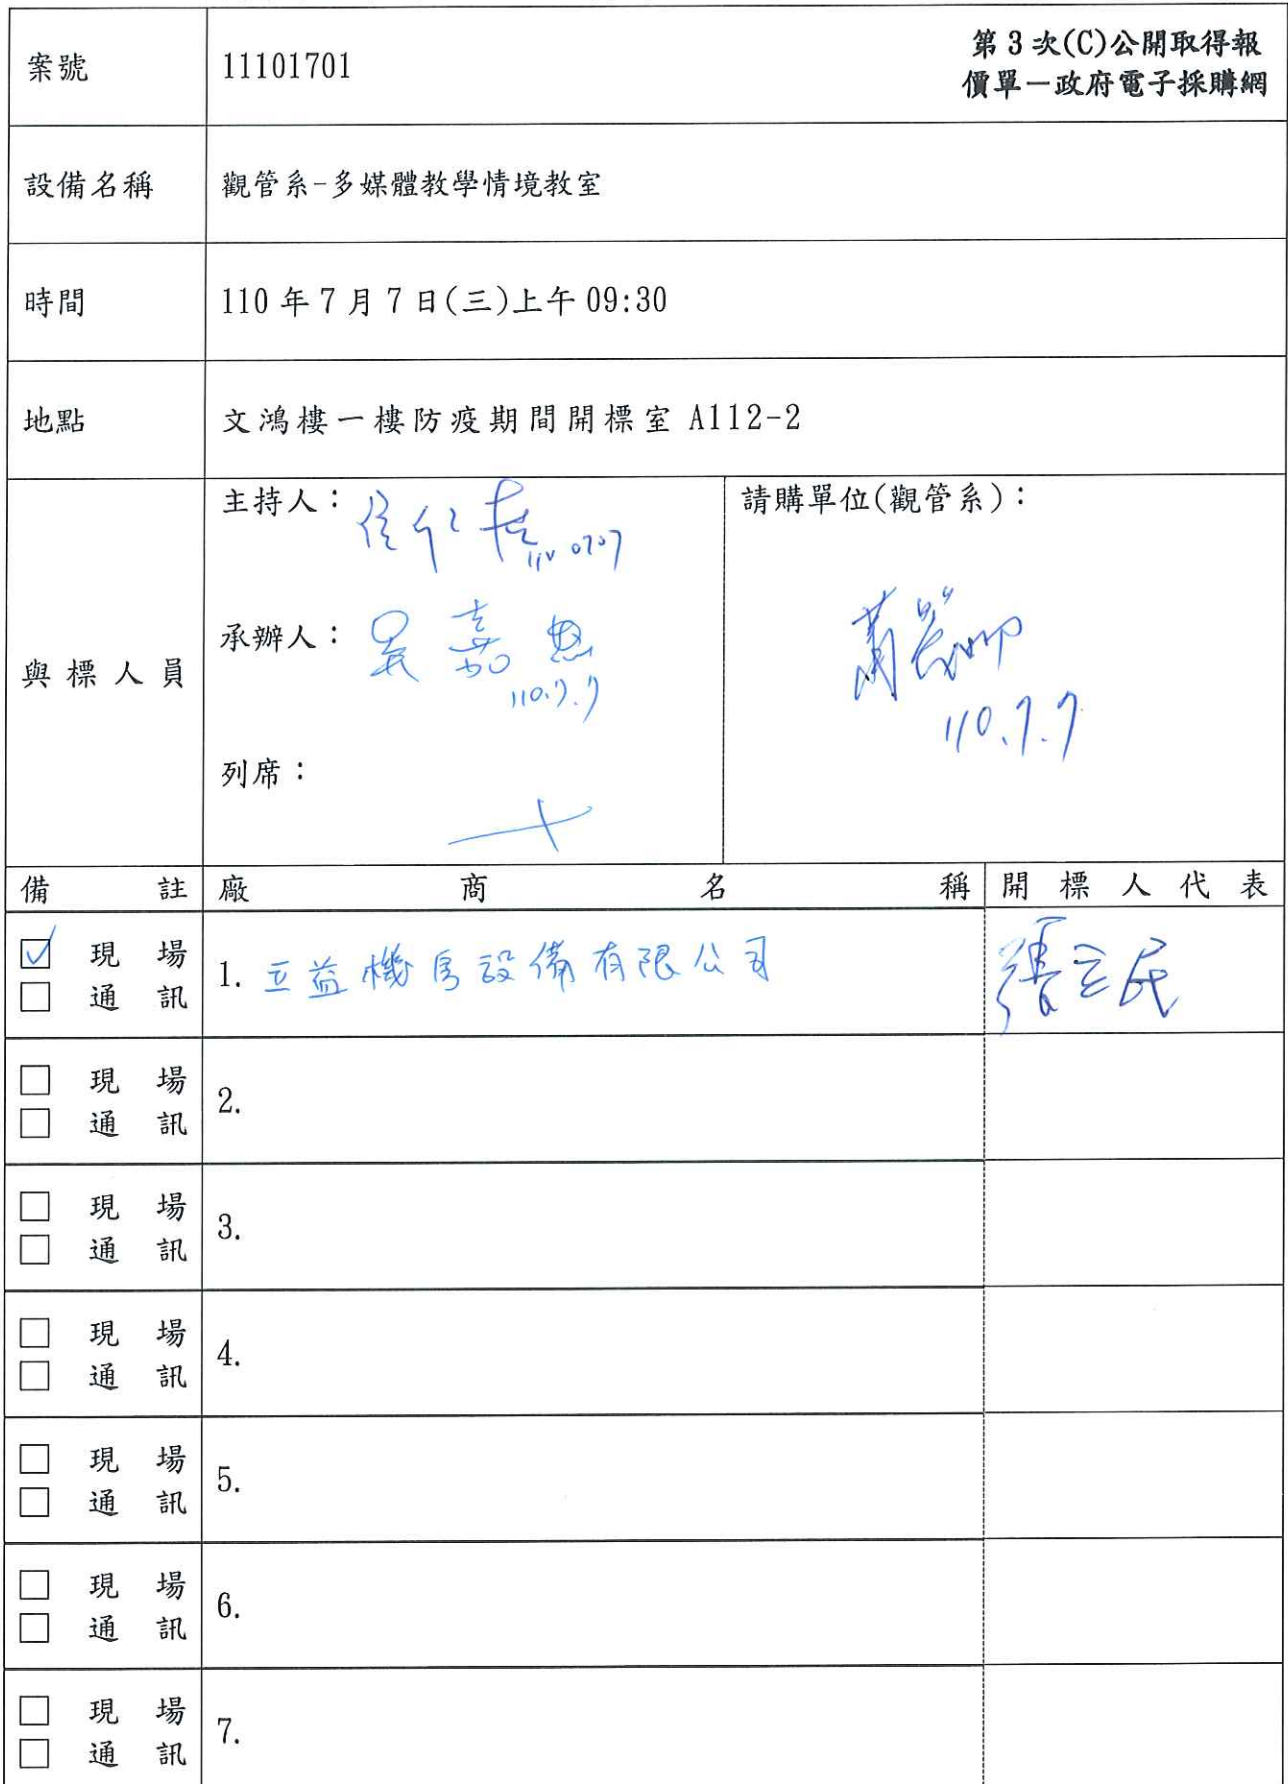 案號 11101701 第3次(C)公開取得報
價單－政府電子採購網
設備名稱 觀管系-多媒體教學情境教室
時間 110年7月7日(三)上午09:30
地點 文鴻樓一樓防疫期間開標室 A112-2
與標人員
主持人：
110 0707
承辦人：吳嘉
110.7.7
列席：
請購單位(觀管系)：
蕭
110.7.7
備註 廠商名稱 開標人代表
☑ 現場 1. 立益機房設備有限公司 張立民
□ 通訊
□ 現場 2.
□ 通訊
□ 現場 3.
□ 通訊
□ 現場 4.
□ 通訊
□ 現場 5.
□ 通訊
□ 現場 6.
□ 通訊
□ 現場 7.
□ 通訊